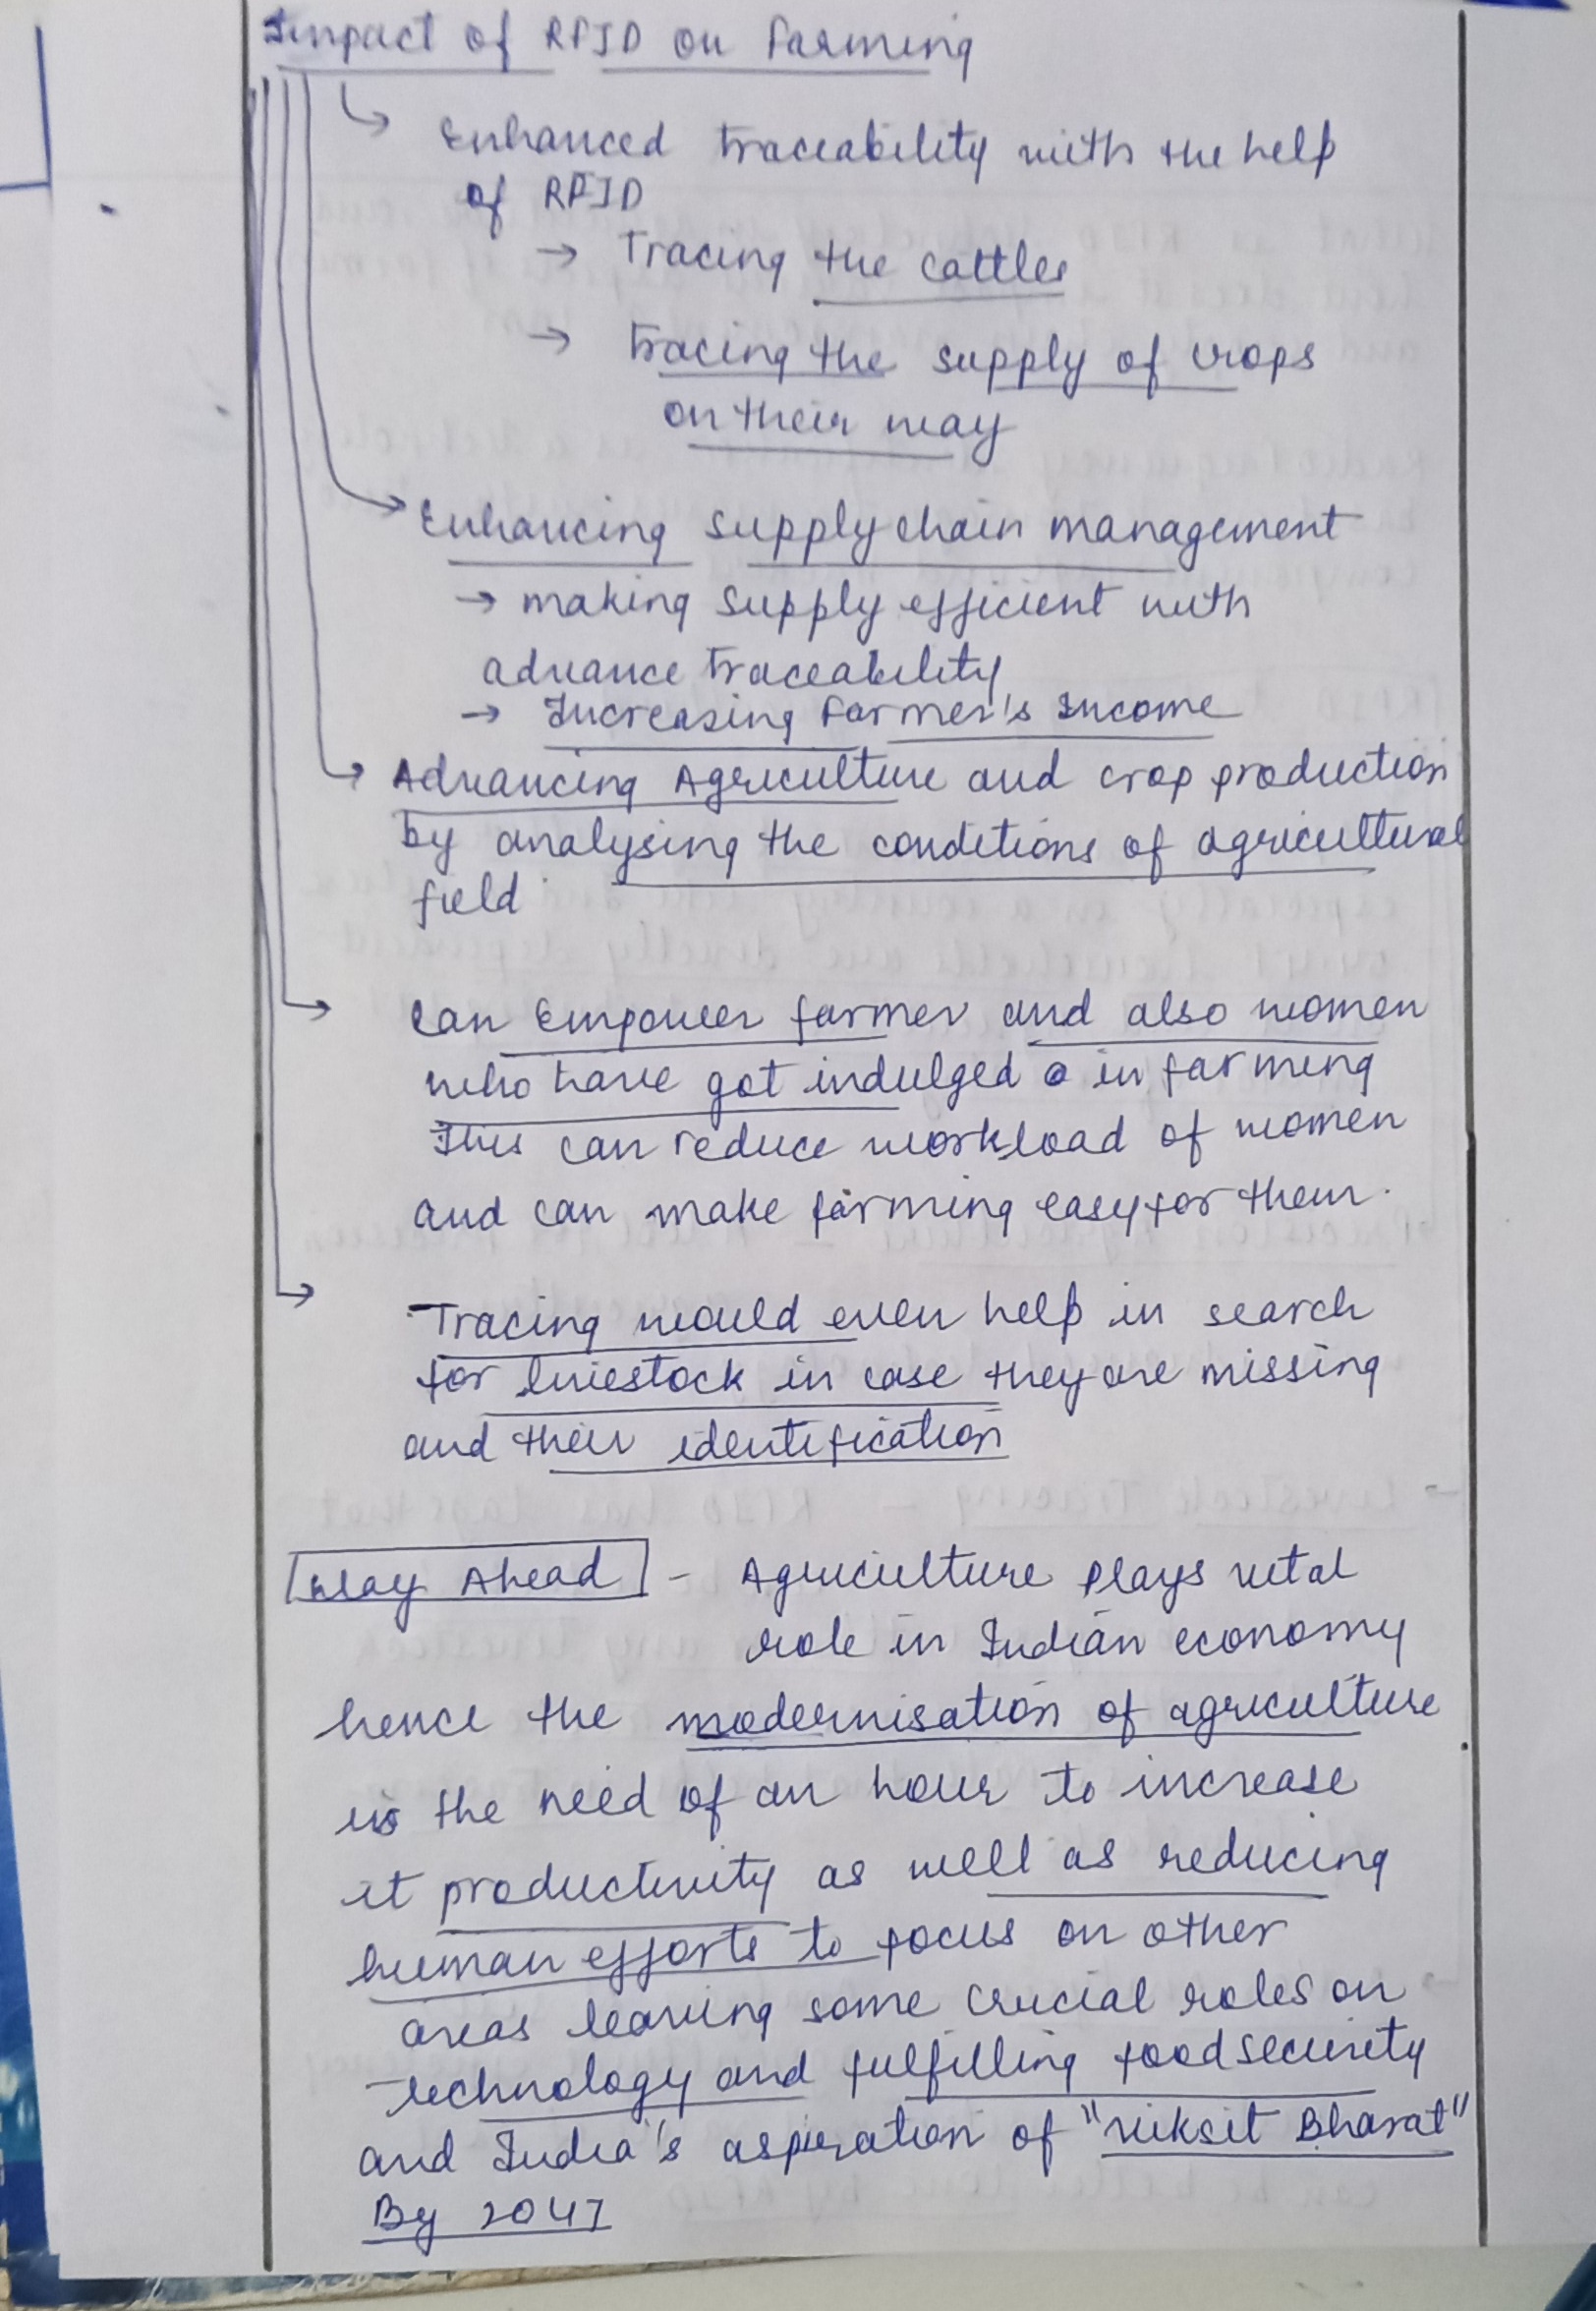 Impact of RFID on Farming
↳ Enhanced traceability with the help
of RFID
→ Tracing the cattles
→ tracing the supply of crops
on their way
→ Enhancing supply chain management
→ making supply efficient with
advance traceability
→ Increasing Farmer's Income
→ Advancing Agriculture and crop production
by analysing the conditions of agricultural
field
→ Can Empower farmer and also women
who have got indulged in farming
This can reduce workload of women
and can make farming easy for them.
→ Tracing would even help in search
for livestock in case they are missing
and their identification
Way Ahead - Agriculture plays vital
role in Indian economy
hence the modernisation of agriculture
is the need of an hour to increase
it productivity as well as reducing
human efforts to focus on other
areas leaving some crucial roles on
technology and fulfilling food security
and India's aspiration of "viksit Bharat"
By 2047